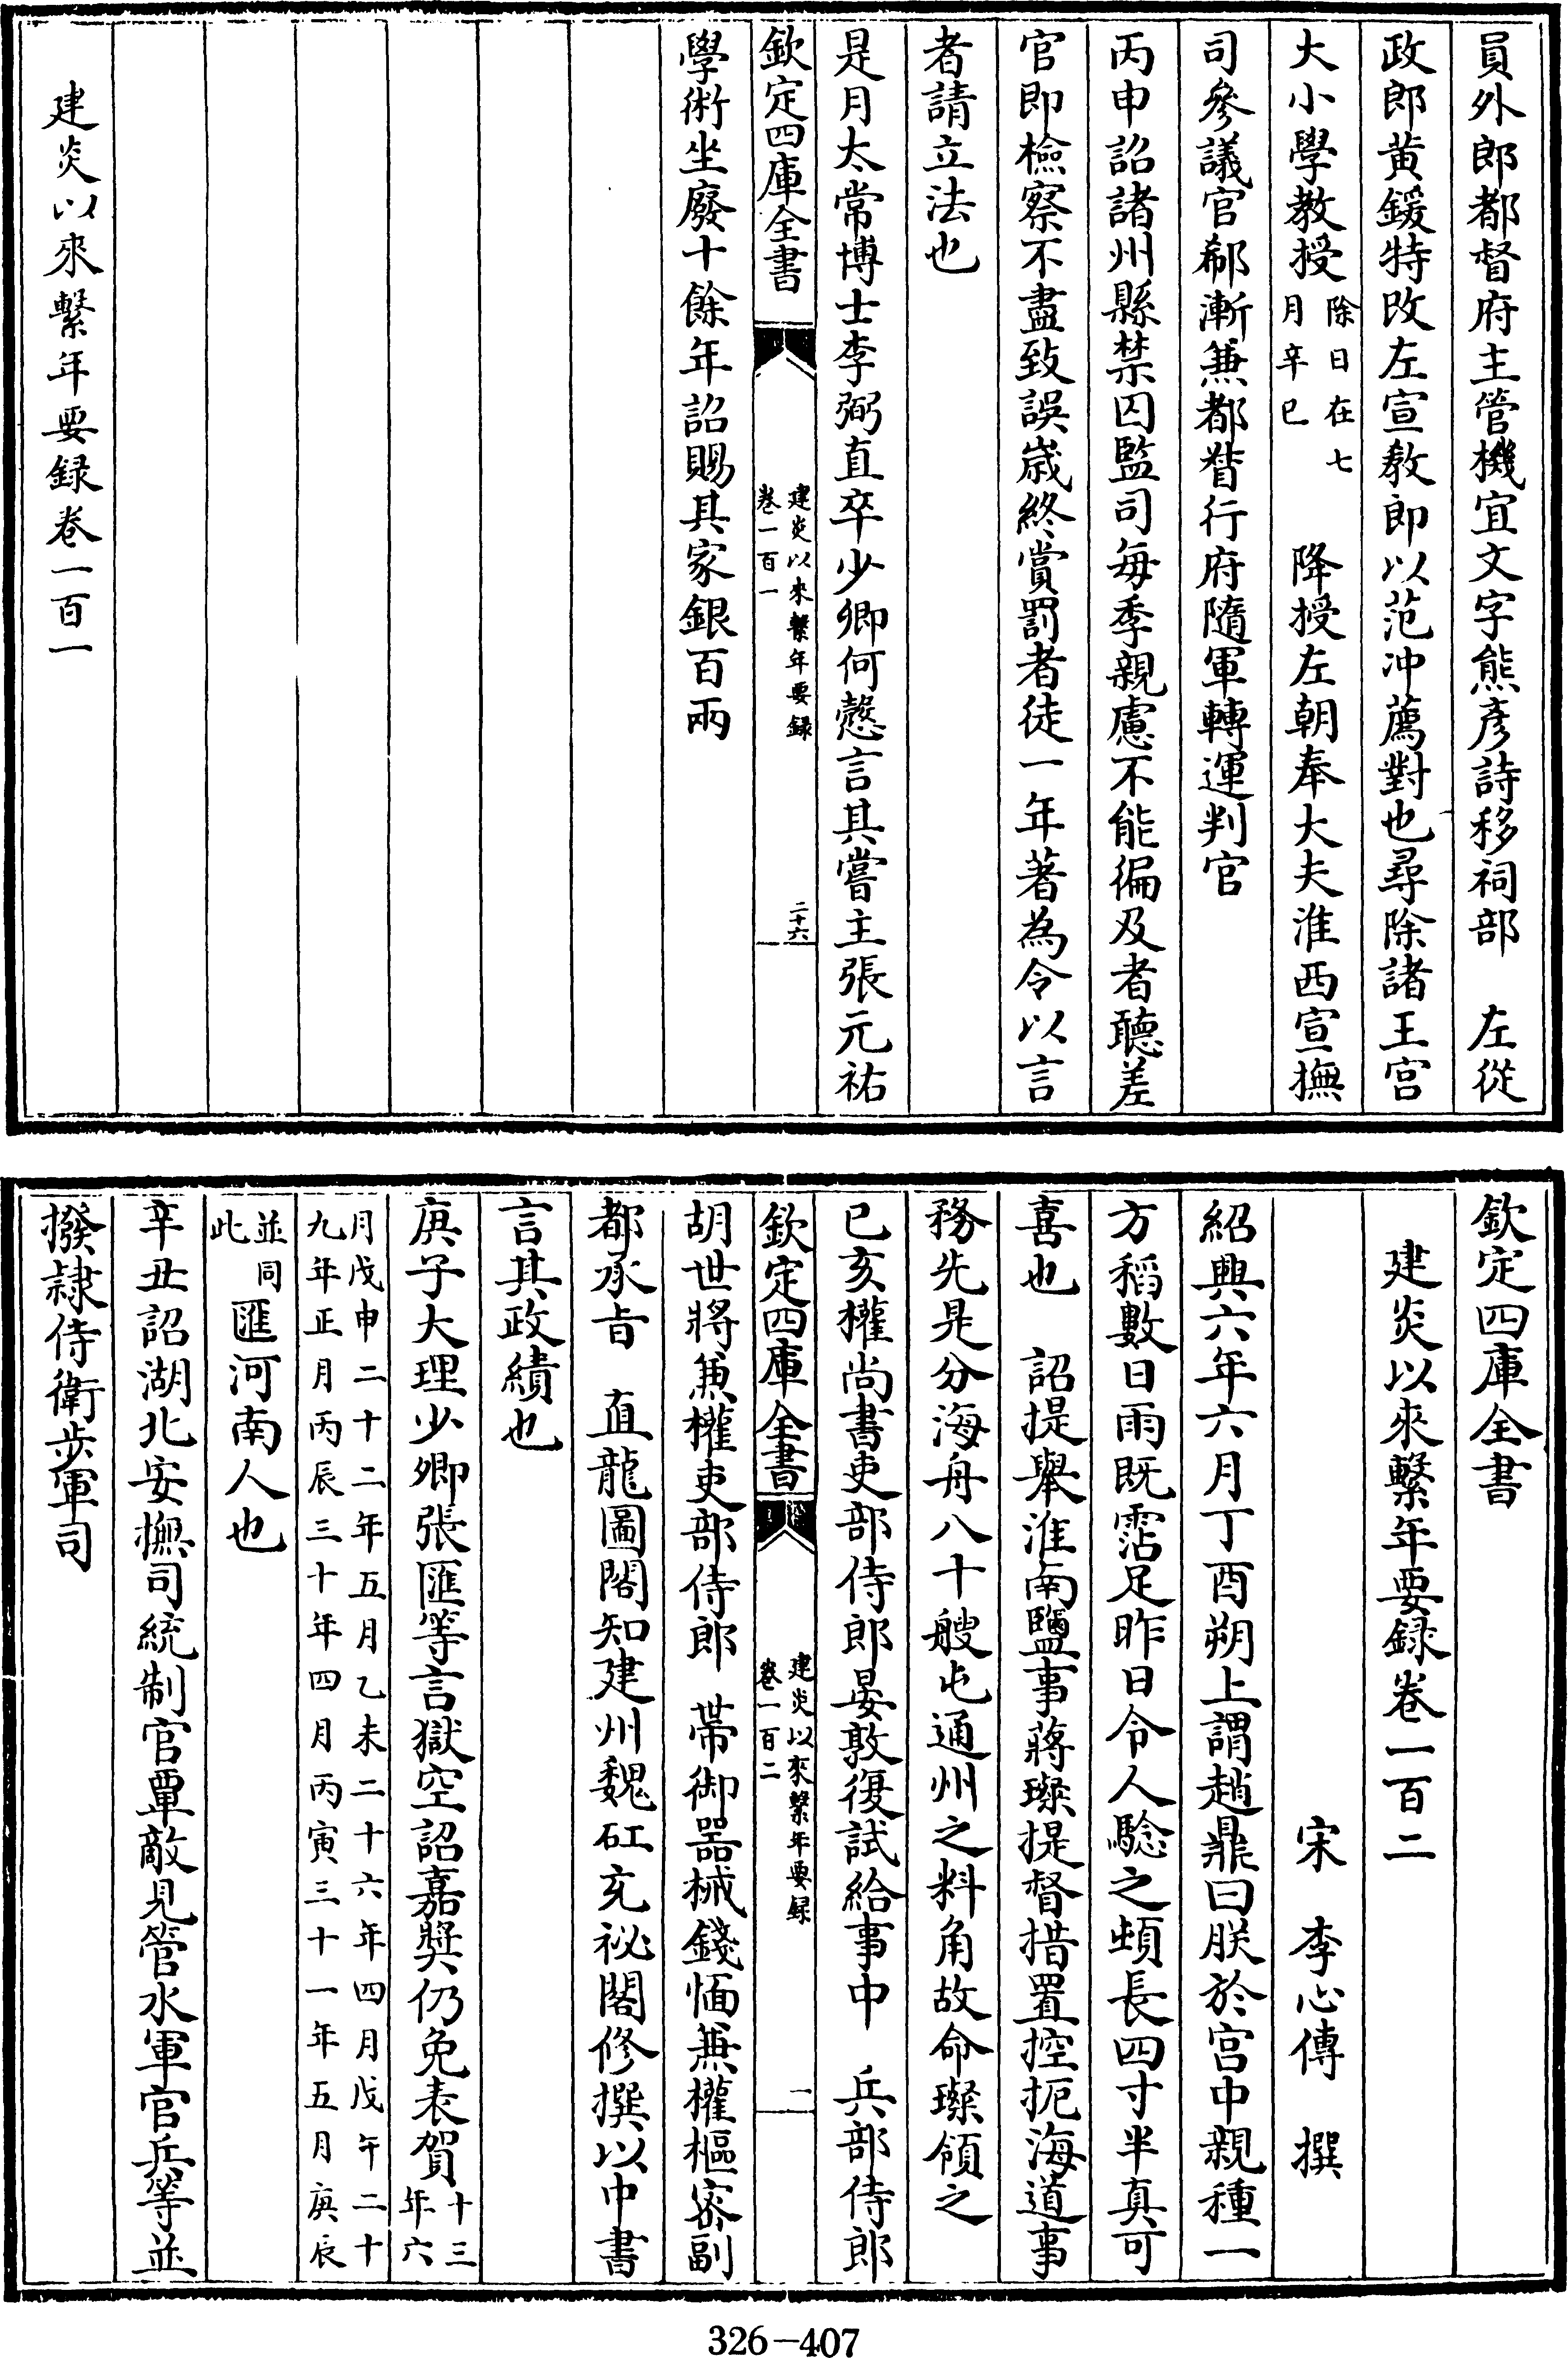 員外郎都督府主管機宜文字熊彦詩移祠部　左從
政郎黄鍰特改左宣教郎以范冲薦對也尋除諸王宫
大小學教授除日在七月辛巳　降授左朝奉大夫淮西宣撫
司參議官郗漸兼都督行府隨軍轉運判官
丙申詔諸州縣禁囚監司每季親慮不能徧及者聽差
官即檢察不盡致誤嵗終賞罰者徒一年著為令以言
者請立法也
是月太常博士李弼直卒少卿何慤言其嘗主張元祐
欽定四庫全書
建炎以來繫年要録
卷一百一
二十六
學術坐廢十餘年詔賜其家銀百兩
建炎以來繫年要録卷一百一
欽定四庫全書
建炎以來繫年要録卷一百二
宋　李心傳　撰
紹興六年六月丁酉朔上謂趙鼎曰朕於宫中親種一
方稻數日雨既霑足昨日令人驗之蝢長四寸半真可
喜也　詔提舉淮南鹽事蔣璨提督措置控扼海道事
務先是分海舟八十艘屯通州之料角故命璨領之
已亥權尚書吏部侍郎晏敦復試給事中　兵部侍郎
欽定四庫全書
建炎以來繫年要録
卷一百二
一
胡世將兼權吏部侍郎　帶御器械錢愐兼權樞密副
都承旨　直龍圖閣知建州魏矼充祕閣修撰以中書
言其政績也
庚子大理少卿張匯等言獄空詔嘉奬仍免表賀十三年六
月戊申二十二年五月乙未二十六年四月戊午二十
九年正月丙辰三十年四月丙寅三十一年五月庚辰
並同此匯河南人也
辛丑詔湖北安撫司統制官覃敵見管水軍官兵等並
撥隷侍衛步軍司
326－407